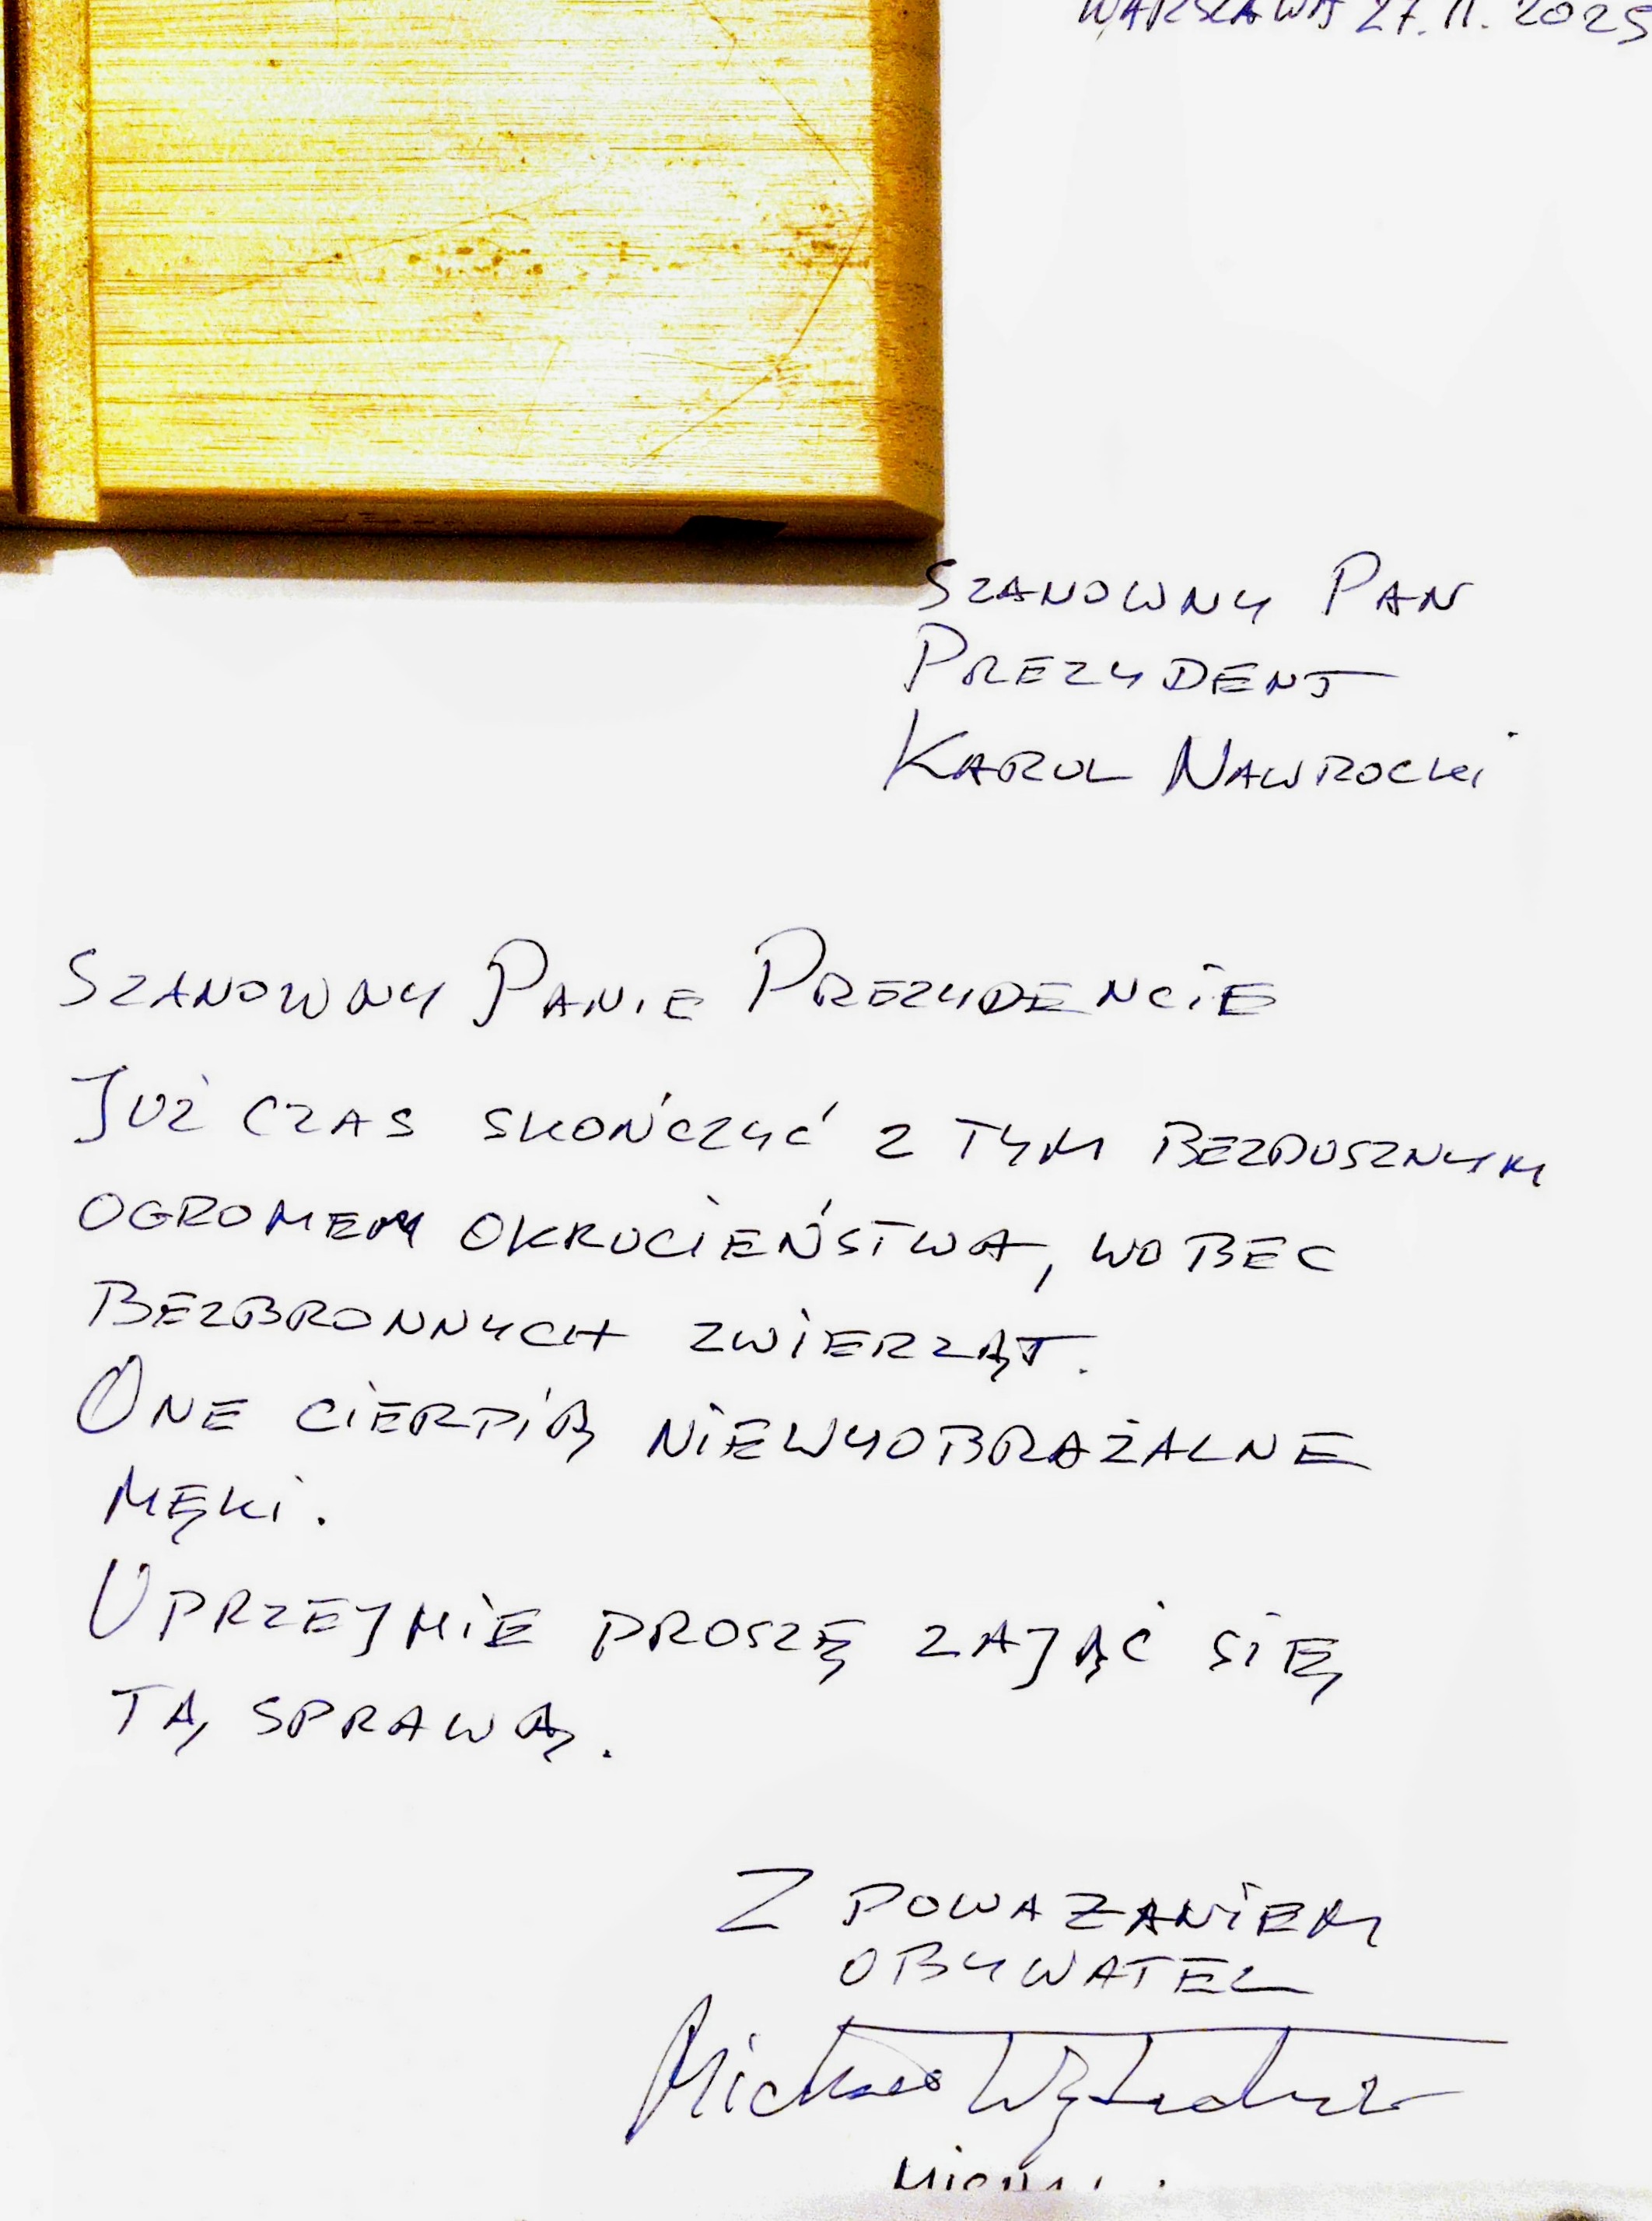 WARSZAWA 27.11.2025
SZANOWNY PAN
PREZYDENT
KAROL NAWROCKI
SZANOWNY PANIE PREZYDENCIE
JUŻ CZAS SKOŃCZYĆ Z TYM BEZDUSZNYM
OGROMEM OKRUCIEŃSTWA, WOBEC
BEZBRONNYCH ZWIERZĄT.
ONE CIERPIĄ NIEWYOBRAŻALNE
MĘKI.
UPRZEJMIE PROSZĘ ZAJĄĆ SIĘ
TĄ SPRAWĄ.
Z POWAZANIEM
OBYWATEL